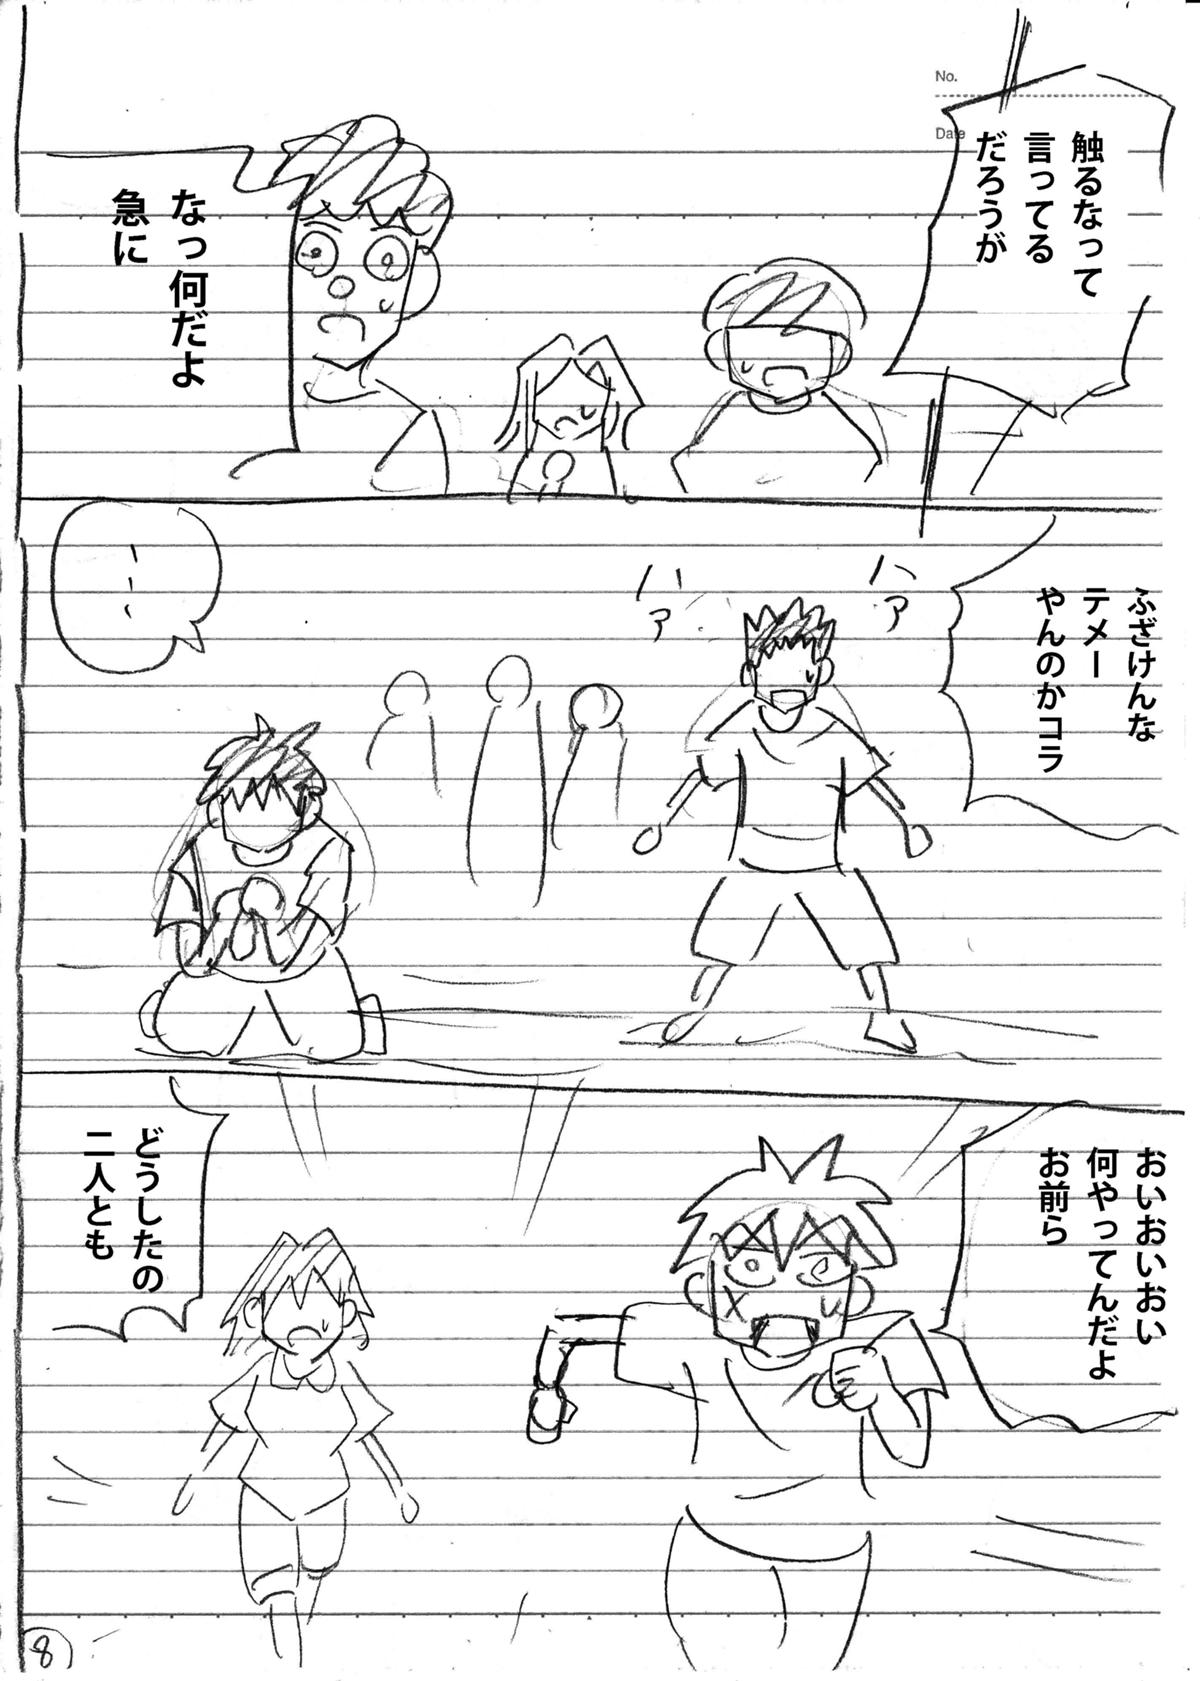 No.
Date
触るなって
言ってる
だろうが
なっ何だよ
急に
ふざけんな
テメー
やんのかコラ
ハァ
ハァ
おいおいおい
何やってんだよ
お前ら
どうしたの
二人とも
8